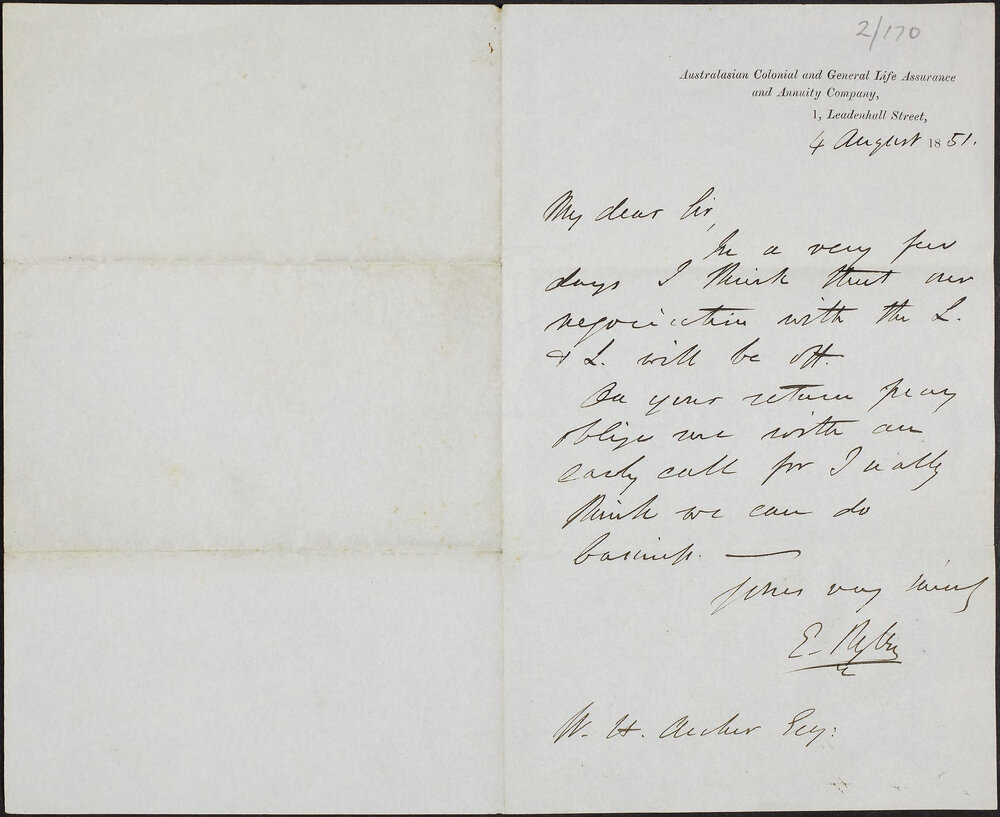 2/170
Australasian Colonial and General Life Assurance
and Annuity Company,
1, Leadenhall Street,
4 August 1851.
My dear Sir,
In a very few
days I think that our
negociation with the L.
& L. will be off.
On your return pray
oblige me with an
early call for I really
think we can do
business. —
Yours very
E. Ryley
W. H. Archer Esq: